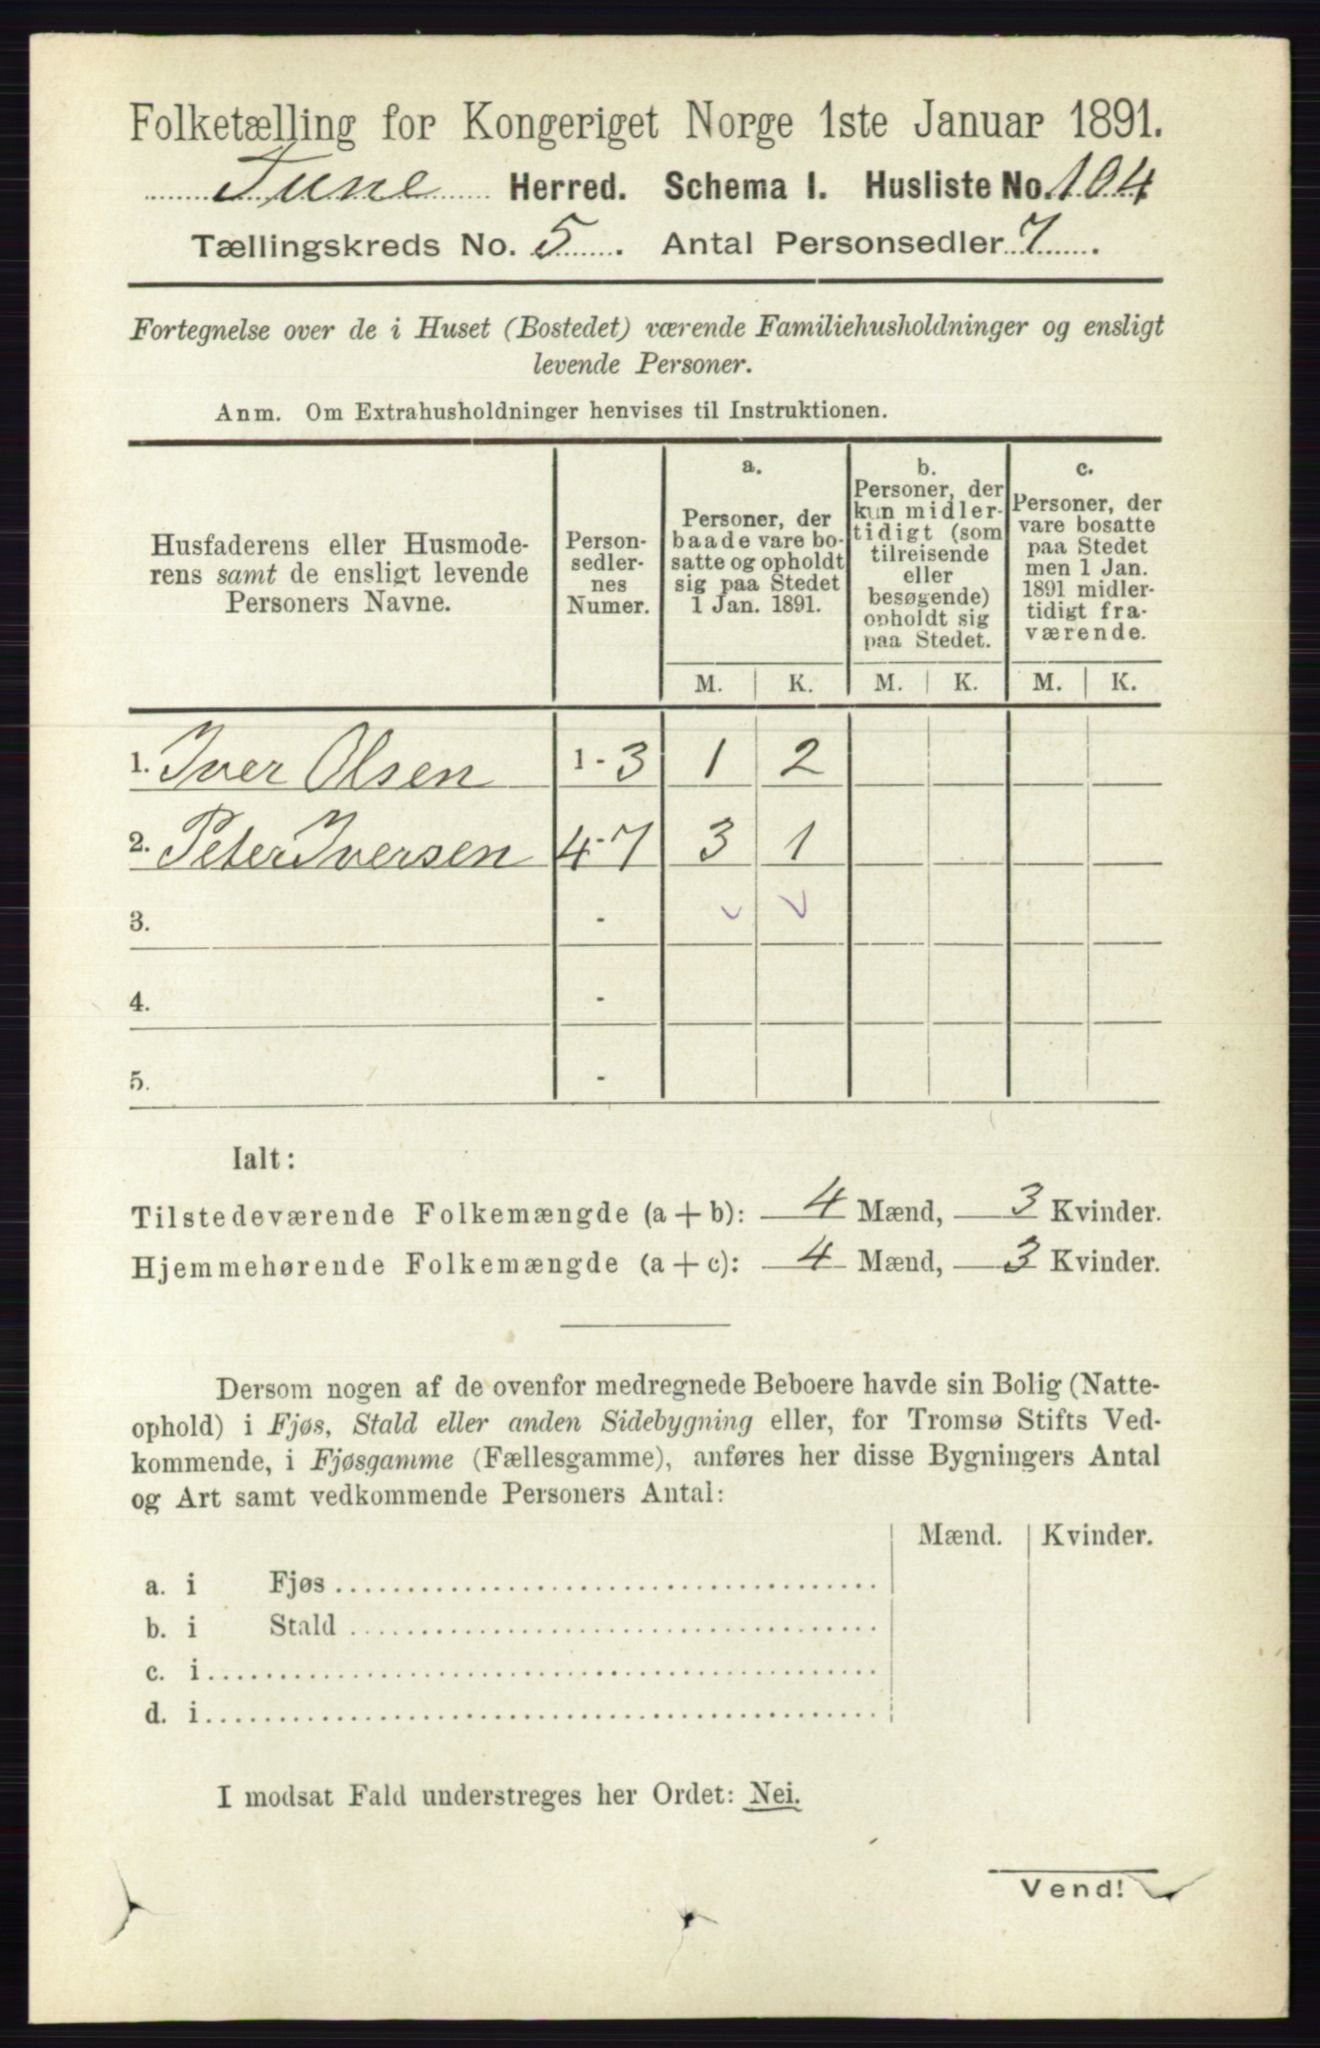 Folketælling for Kongeriget Norge 1ste Januar 1891.
Tune Herred. Schema I. Husliste No. 104
Tællingskreds No. 5. Antal Personsedler 7.
Fortegnelse over de i Huset (Bostedet) værende Familiehusholdninger og ensligt
levende Personer.
Anm. Om Extrahusholdninger henvises til Instruktionen.
Husfaderens eller Husmode-
rens samt de ensligt levende
Personers Navne.
Person-
sedler-
nes
Numer.
a.
Personer, der
baade vare bo-
satte og opholdt
sig paa Stedet
1 Jan. 1891.
b.
Personer, der
kun midler-
tidigt (som
tilreisende
eller
besøgende)
opholdt sig
paa Stedet.
c.
Personer, der
vare bosatte
paa Stedet
men 1 Jan.
1891 midler-
tidigt fra-
værende.
M. K. M. K. M. K.
1. Iver Olsen 1 - 3 1 2
2. Peter Iversen 4 - 7 3 1
3. -
4. -
5. -
Ialt:
Tilstedeværende Folkemængde (a + b): 4 Mænd, 3 Kvinder.
Hjemmehørende Folkemængde (a + c): 4 Mænd, 3 Kvinder.
Dersom nogen af de ovenfor medregnede Beboere havde sin Bolig (Natte-
ophold) i Fjøs, Stald eller anden Sidebygning eller, for Tromsø Stifts Ved-
kommende, i Fjøsgamme (Fællesgamme), anføres her disse Bygningers Antal
og Art samt vedkommende Personers Antal:
Mænd. Kvinder.
a. i Fjøs
b. i Stald
c. i
d. i
I modsat Fald understreges her Ordet: Nei.
Vend!